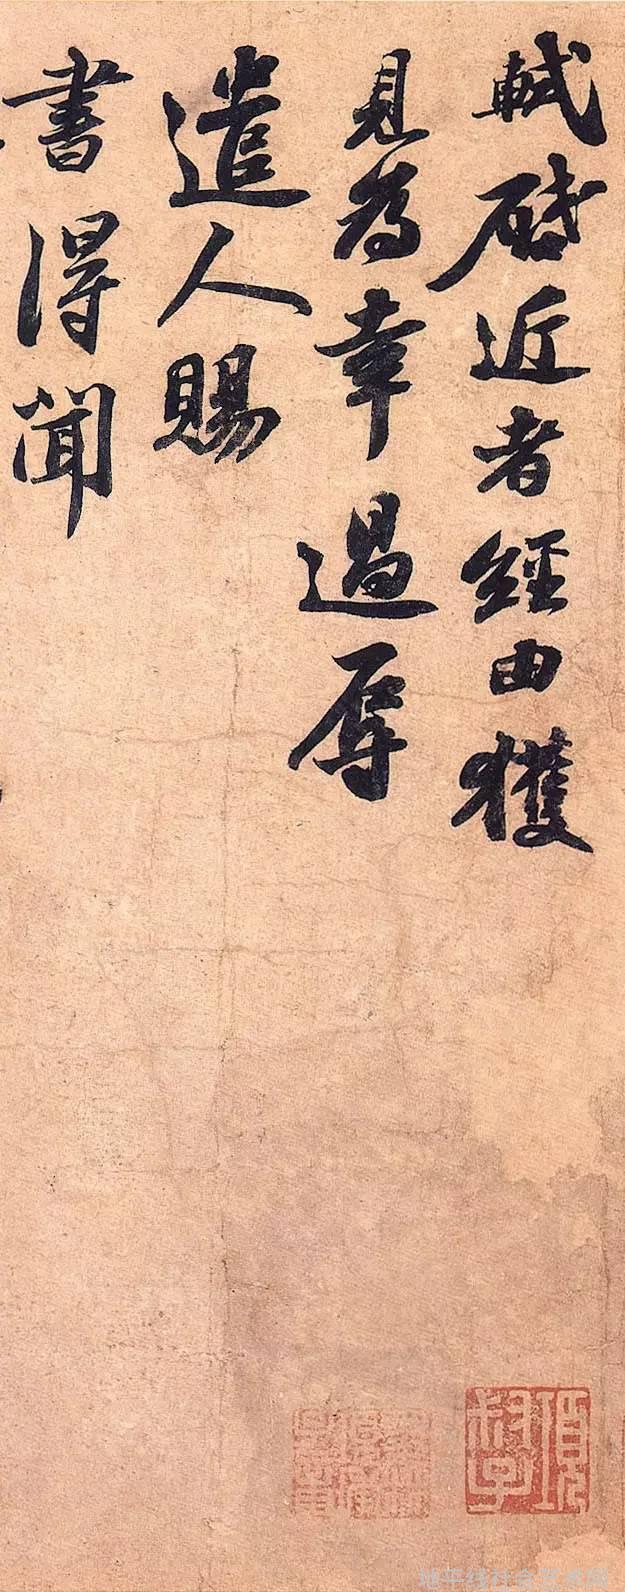 軾啓近者經由獲
見為幸過辱
遣人賜
書得聞